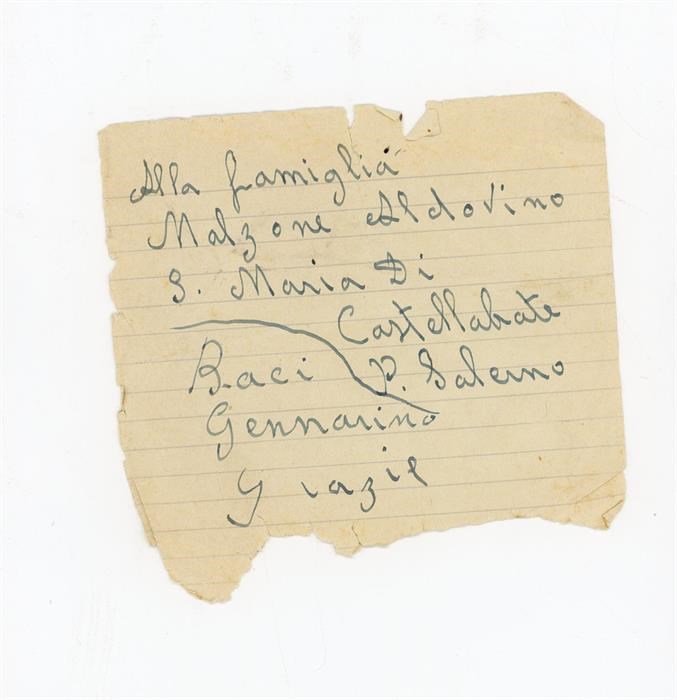 Alla famiglia
Malzone Aldovino
S. Maria Di
Castellabate
P. Salerno
Baci
Gennarino
Grazie